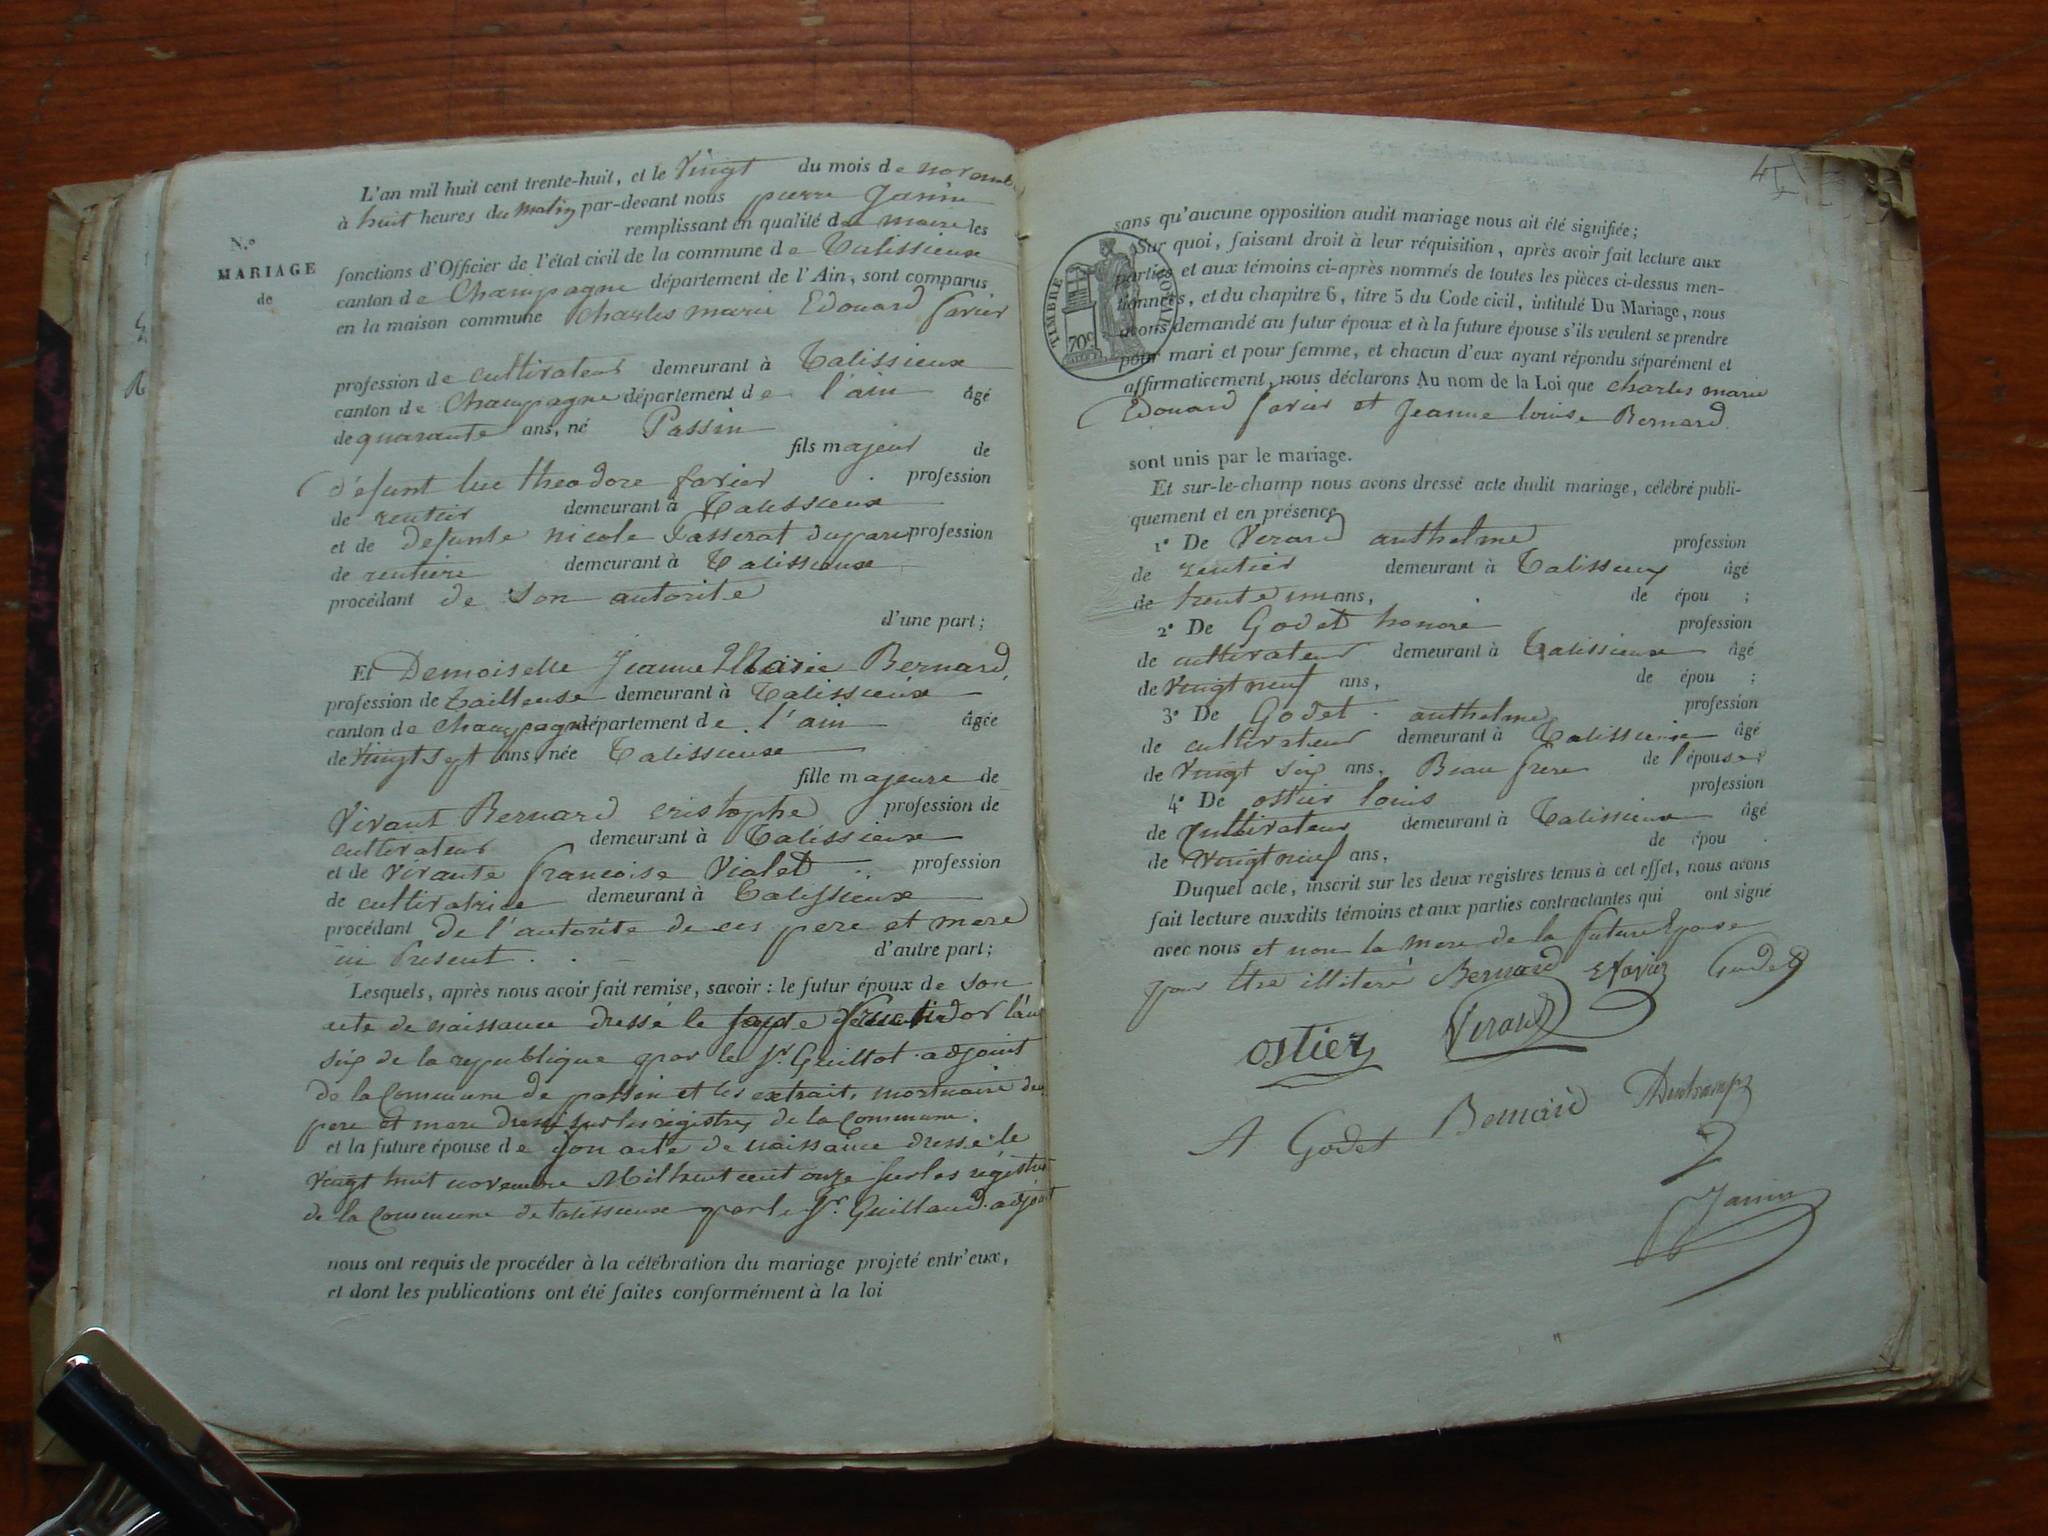 L'an mil huit cent trente-huit, et le Vingt du mois de novemb
à huit heures du matin par-devant nous pierre Janin
remplissant en qualité de maire les
fonctions d'Officier de l'état civil de la commune de Talissieux
canton de Champagne département de l'Ain, sont comparus
en la maison commune Charles marie Edouard favier
N.º
MARIAGE
de
profession de cultivateur demeurant à Talissieux
canton de Champagne département de l'ain âgé
de quarante ans, né Passin
fils majeur de
défunt luc theodore favier profession
de rentier demeurant à Talissieux
et de defunte nicole Passerat duparc profession
de rentiere demeurant à Talissieux
procédant de son autorite
d'une part;
Et Demoiselle Jeanne Marie Bernard,
profession de Tailleuse demeurant à Talissieux
canton de Champagne département de l'ain âgée
de vingt sept ans, née Talissieux
fille majeure de
Vivant Bernard cristophe profession de
cultivateur demeurant à Talissieux
et de vivante francoise Violet profession
de cultivatrice demeurant à Talissieux
procédant de l'autorite de ces pere et mere
ici Present d'autre part;
Lesquels, après nous avoir fait remise, savoir : le futur époux de son
acte de naissance dressé le fructidor l'an
six de la republique par le Sr. Guillot adjoint
de la Commune de passin et les extrait, mortuaire de
pere et mere dressé sur les régistres de la Commune
et la future épouse de son acte de naissance dressé le
vingt huit novembre Mil huit cent onze sur les régistres
de la Commune de talissieux par le Sr. Guillaud adjoint
nous ont requis de procéder à la célébration du mariage projeté entr'eux,
et dont les publications ont été faites conformément à la loi
sans qu'aucune opposition audit mariage nous ait été signifiée;
Sur quoi, faisant droit à leur réquisition, après avoir fait lecture aux
parties et aux témoins ci-après nommés de toutes les pièces ci-dessus men-
tionnées, et du chapitre 6, titre 5 du Code civil, intitulé Du Mariage, nous
avons demandé au futur époux et à la future épouse s'ils veulent se prendre
pour mari et pour femme, et chacun d'eux ayant répondu séparément et
affirmativement, nous déclarons Au nom de la Loi que charles marie
Edouard favier et Jeanne louise Bernard
TIMBRE ROYAL
70c
sont unis par le mariage.
Et sur-le-champ nous avons dressé acte dudit mariage, célébré publi-
quement et en présence
1º De Verard anthelme profession
de rentier demeurant à Talissieux âgé
de trente un ans, de épou ;
2º De Godet honoré profession
de cultivateur demeurant à Talissieux âgé
de vingt neuf ans, de épou ;
3º De Godet anthelme profession
de cultivateur demeurant à Talissieux âgé
de vingt six ans, Beau frere de l'épouse;
4º De ostier louis profession
de cultivateur demeurant à Talissieux âgé
de vingt neuf ans, de épou .
Duquel acte, inscrit sur les deux registres tenus à cet effet, nous avons
fait lecture auxdits témoins et aux parties contractantes qui ont signé
avec nous et non la mere de la future Epouse
pour être illiteré Bernard E favier Godet
ostier Verard
A Godet Bernard
Janin